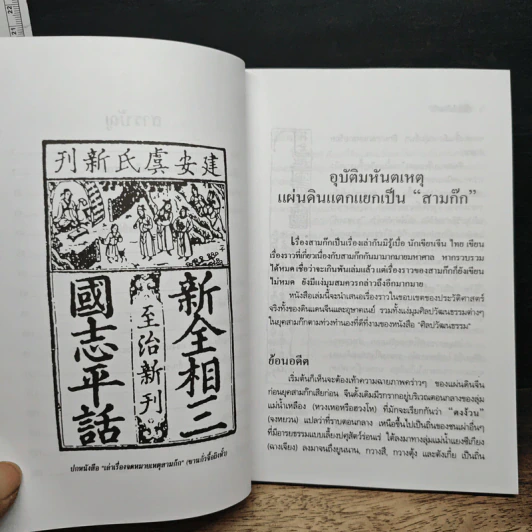 建安虞氏新刊
新全相三
至治新刊
國志平話
ปกหนังสือ "เล่าเรื่องจดหมายเหตุสามก๊ก" (ซานกั๋วจื้อผิงฮั่ว)
อุบัติมหันตเหตุ
แผ่นดินแตกแยกเป็น “สามก๊ก”
เรื่องสามก๊กเป็นเรื่องเล่ากันมิรู้เบื่อ นักเขียนจีน ไทย เขียน
เรื่องราวที่เกี่ยวเนื่องกับสามก๊กกันมามากมายมหาศาล หากรวบรวม
ได้หมดเชื่อว่าจะเกินพันเล่มแล้ว แต่เรื่องราวของสามก๊กก็ยังเขียน
ไม่หมด ยังมีแง่มุมสมควรกล่าวถึงอีกมากมาย
หนังสือเล่มนี้จะนำเสนอเรื่องราวในขอบเขตของประวัติศาสตร์
จริงทั้งของดินแดนจีนและอุษาคเนย์ รวมทั้งแง่มุมศิลปวัฒนธรรมต่างๆ
ในยุคสามก๊กตามท่วงทำนองที่ดีที่งามของหนังสือ “ศิลปวัฒนธรรม”
ย้อนอดีต
เริ่มต้นก็เห็นจะต้องเท้าความฉายภาพคร่าวๆ ของแผ่นดินจีน
ก่อนยุคสามก๊กเสียก่อน จีนดั้งเดิมมีรกรากอยู่บริเวณตอนกลางของลุ่ม
แม่น้ำเหลือง (หวงเหอหรือฮวงโห) ที่มักจะเรียกกันว่า “ตงง้วน”
(จงหยวน) แปลว่าที่ราบตอนกลาง เหนือขึ้นไปเป็นถิ่นของชนเผ่าอื่นๆ
ที่มีอารยธรรมแบบเลี้ยงปศุสัตว์ร่อนเร่ ใต้ลงมาทางลุ่มแม่น้ำแยงซีเกียง
(ฉางเจียง) ลงมาจนถึงยูนนาน, กวางสี, กวางตุ้ง และตังเกี๋ย เป็นถิ่น